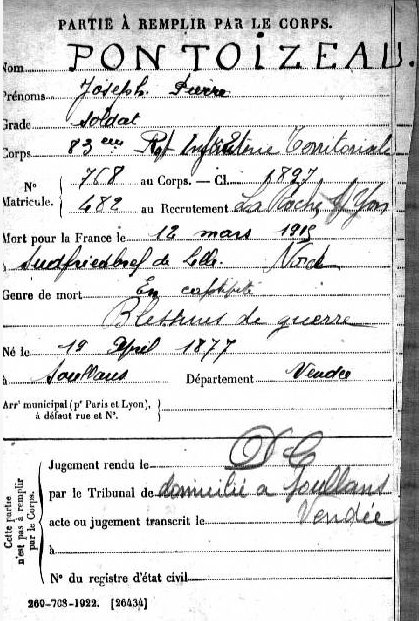 PARTIE À REMPLIR PAR LE CORPS.
Nom PONTOIZEAU.
Prénoms Joseph Pierre
Grade soldat
Corps 83 eme Rgt Infanterie Territoriale
N° 768 au Corps. — Cl. 1897
Matricule. 482 au Recrutement La Roche s/ Yon
Mort pour la France le 12 mars 1915
à Sudfriedhof de Lille Nord
Genre de mort En captivité
Blessures de guerre
Né le 19 April 1877
à Soullans Département Vendée
Arrt municipal (pr Paris et Lyon),
à défaut rue et N°.
Cette partie n'est pas à remplir par le Corps.
Jugement rendu le DC
par le Tribunal de domicilié a Soullans
acte ou jugement transcrit le Vendée
à
N° du registre d'état civil
269-708-1922. [26434]